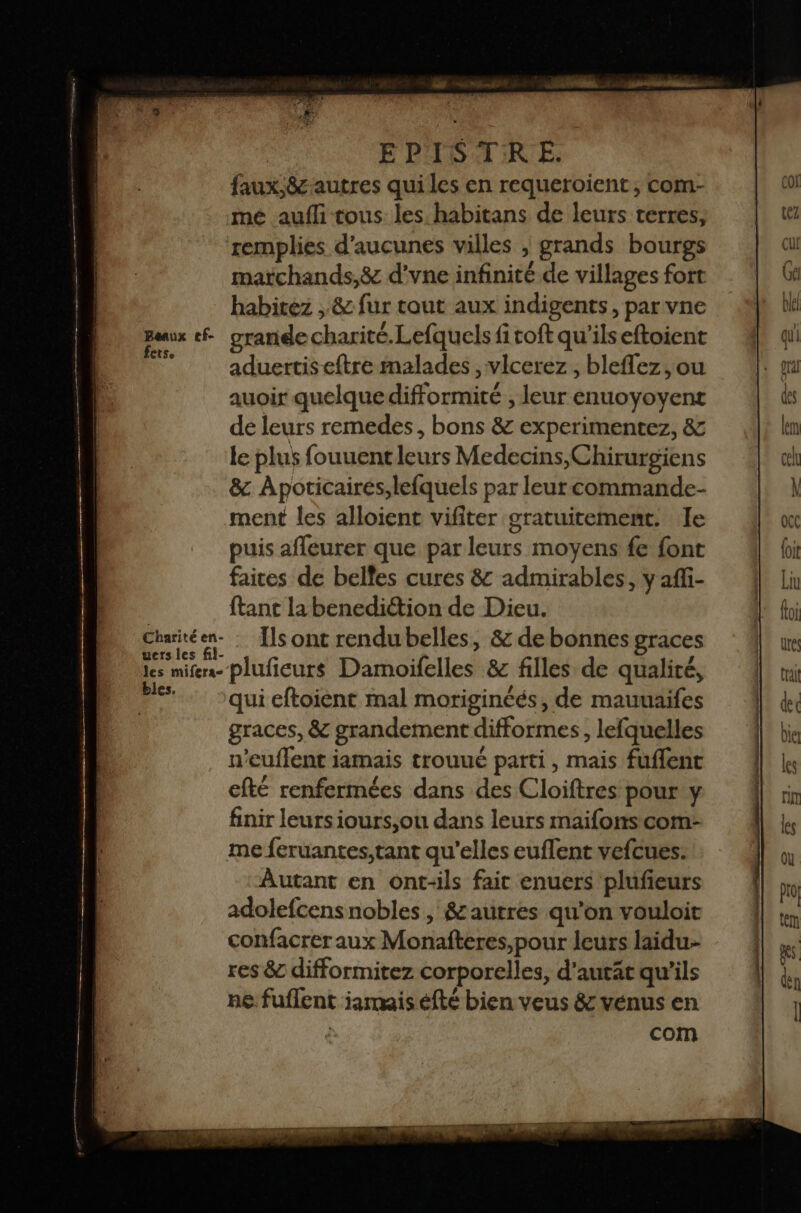 EPISTRE.
faux,& autres qui les en requeroient, com-
me aussi tous les habitans de leurs terres,
remplies d'aucunes villes , grands bourgs
marchands,& d'vne infinité de villages fort
habitez , & sur tout aux indigents, par vne
Beaux ef-
fets.
grande charité. Lesquels si tost qu'ils estoient
aduertis estre malades , vlcerez , blessez, ou
auoir quelque difformité , leur enuoyoyent
de leurs remedes, bons & experimentez, &
le plus souuent leurs Medecins, Chirurgiens
& Apoticaires,lesquels par leur commande-
ment les alloient visiter gratuitement. Ie
puis asseurer que par leurs moyens se sont
faites de belles cures & admirables, y assi-
stant la benediction de Dieu.
Charité en-
uers les fil-
les misera-
bles.
Ils ont rendu belles, & de bonnes graces
plusieurs Damoiselles & filles de qualité,
qui estoient mal moriginéés, de mauuaises
graces, & grandement difformes , lesquelles
n'eussent iamais trouué parti , mais fussent
esté renfermées dans des Cloistres pour y
finir leurs iours,ou dans leurs maisons com-
me seruantes,tant qu'elles eussent vescues.
Autant en ont-ils fait enuers plusieurs
adolescens nobles , & autres qu'on vouloit
consacrer aux Monasteres,pour leurs laidu-
res & difformitez corporelles, d'autāt qu'ils
ne fussent iamaisésté bien veus & vénus en
com